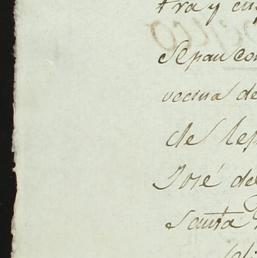 tra y en
Sepan con
vecina de
de le
José de
Santa